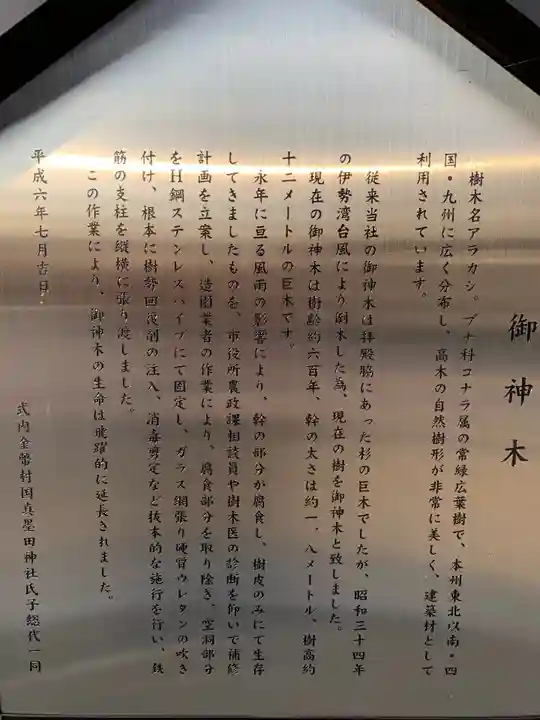 御神木
樹木名アラカシ。ブナ科コナラ属の常緑広葉樹で、本州東北以南・四
国・九州に広く分布し、高木の自然樹形が非常に美しく、建築材として
利用されています。
従来当社の御神木は拝殿脇にあった杉の巨木でしたが、昭和三十四年
の伊勢湾台風により倒木した為、現在の樹を御神木と致しました。
現在の御神木は樹齢約六百年、幹の太さは約一、八メートル、樹高約
十二メートルの巨木です。
永年に亘る風雨の影響により、幹の部分が腐食し、樹皮のみにて生存
してきましたものを、市役所農政課相談員や樹木医の診断を仰いで補修
計画を立案し、造園業者の作業により、腐食部分を取り除き、空洞部分
をH鋼ステンレスパイプにて固定し、ガラス網張り硬質ウレタンの吹き
付け、根本に樹勢回復剤の注入、消毒剪定など抜本的な施行を行い、鉄
筋の支柱を縦横に張り渡しました。
この作業により、御神木の生命は飛躍的に延長されました。
平成六年七月吉日
式内金幣村国真墨田神社氏子総代一同